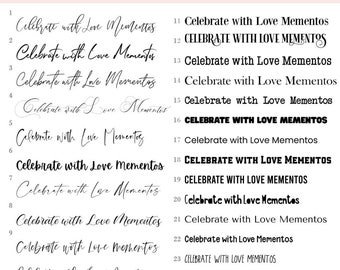 1
Celebrate with Love Mementos
2
Celebrate with Love Mementos
3
Celebrate with Love Mementos
4
Celebrate with Love Mementos
5
Celebrate with Love Mementos
6
Celebrate with Love Mementos
7
Celebrate with Love Mementos
8
Celebrate with Love Mementos
9
Celebrate with Love Mementos
11 Celebrate with Love Mementos
12 CELEBRATE WITH LOVE MEMENTOS
13 Celebrate with Love Mementos
14 Celebrate with Love Mementos
15 Celebrate with Love Mementos
16 CELEBRATE WITH LOVE MEMENTOS
17 Celebrate with Love Mementos
18 Celebrate with Love Mementos
19 CELEBRATE WITH LOVE MEMENTOS
20 Celebrate with Love Mementos
21 Celebrate with Love Mementos
22 Celebrate with Love Mementos
23 CELEBRATE WITH LOVE MEMENTOS